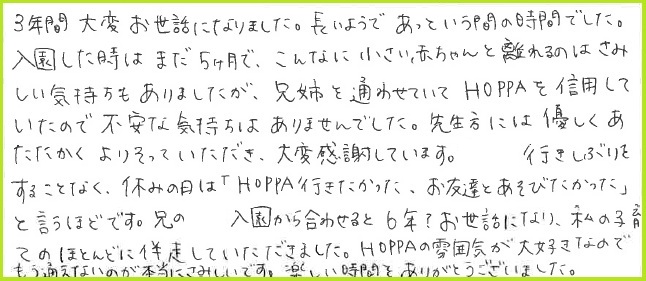 3年間 大変 お世話になりました。長いようで あっという間の時間でした。
入園した時は まだ 5ヶ月で、こんなに 小さい赤ちゃんと 離れるのは さみ
しい気持ちも ありましたが、兄姉を 通わせていて HOPPAを信用して
いたので 不安な気持ちは ありませんでした。先生方には 優しく あ
たたかく よりそって いただき、大変感謝しています。 行きしぶりを
することなく、休みの日は「HOPPA行きたかった、お友達とあそびたかった」
と言うほどです。兄の 入園から合わせると 6年?お世話になり、私の子育
てのほとんどに 伴走していただきました。HOPPAの雰囲気が大好きなので
もう通えないのが本当にさみしいです。楽しい時間を ありがとうございました。